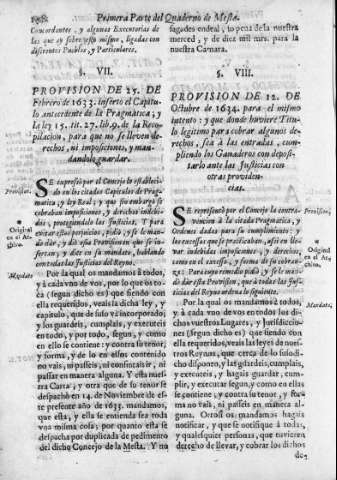 Primera Parte del Quaderno de Mesta.
Concordantes, y algunas Executorias de
los que ay sobre esto mismo, ligadas con
diferentes Pueblos, y Particulares.
§. VII.
PROVISION DE 25. DE
Febrero de 1633. inserto el Capitulo
antecedente de la Pragmatica; y
la ley 15. tit. 27. lib. 9. de la Recopilacion,
para que no se lleven derechos,
ni imposiciones, y mandandolo
guardar.
Provision.
SE expresò por el Concejo lo establecido
en los citados Capitulos de Pragmatica,
y ley Real; y que sin embargo se
cobraban imposiciones, y derechos indebidos,
Y para
evitar estos perjuicios, pidiò, y se le mandò
dar, y diò esta Provision en que se insertan,
y dice su mandato, hablando
con todas las Justicias del Reyno:
Original en el Archivo.
Mandato.
Por la qual os mandamos à todos,
y à cada uno de vos, por lo que os toca
(segun dicho es) que siendo con
ella requeridos, veais la dicha ley, y
capitulo, que de suso và incorporado,
y los guardeis, cumplais, y executeis
en todo, y por todo, segun, y como
en ello se contiene; y contra su tenor,
y forma, y de lo en ellos contenido
no vais, ni paseis, ni consintais ir, ni
pasar en manera alguna. Y esta nuestra
Carta, y otra que de su tenor se
despachò en 14. de Noviembre de este
presente año de 1633. mandamos,
que esta, y ella se entienda sea toda
una misma cosa; por quanto esta se
despacha por duplicada de pedimento
del dicho Concejo de la Mesta. Y no
fagades endeal, so pena de la nuestra
merced, y de diez mil mrs. para la
nuestra Camara.
§. VIII.
PROVISION DE 12. DE
Octubre de 1634. para el mismo
intento; y que donde huviere Titulo
legitimo para cobrar algunos derechos,
sea à las entradas, cumpliendo
los Ganaderos con depositario
ante las Justicias con
otras providencias.
Provision.
SE representò por el Concejo la contravencion
à la citada Pragmatica, y
Ordenes dadas para su cumplimiento; y
los excesos que se practicaban, asi en el
de imposiciones, y derechos,
como en el exceso, y forma de su cobranza:
Para cuyo remedio pidiò, y se le mandò
dar esta Provision, que à todas las Justicias
del Reyno ordena lo siguiente.
Original en el Archivo.
Mandato.
Por la qual os mandamos à todos,
y à cada uno de vos en los dichos
vuestros Lugares, y Jurisdicciones
(segun dicho es) que siendo con
ella requeridos, veais las leyes de nuestros
Reynos, que cerca de lo susodicho
disponen, y las guardeis, cumplais,
y executeis, y hagais guardar, cumplir,
y executar segun, y como en ellas
se contiene; y contra su tenor, y forma
no vais, ni paseis en manera alguna.
Otrosi os mandamos hagais
notificar, y que se notifique à todas,
y qualesquier personas, que tuvieren
derecho de llevar, y cobrar los dichos
de-